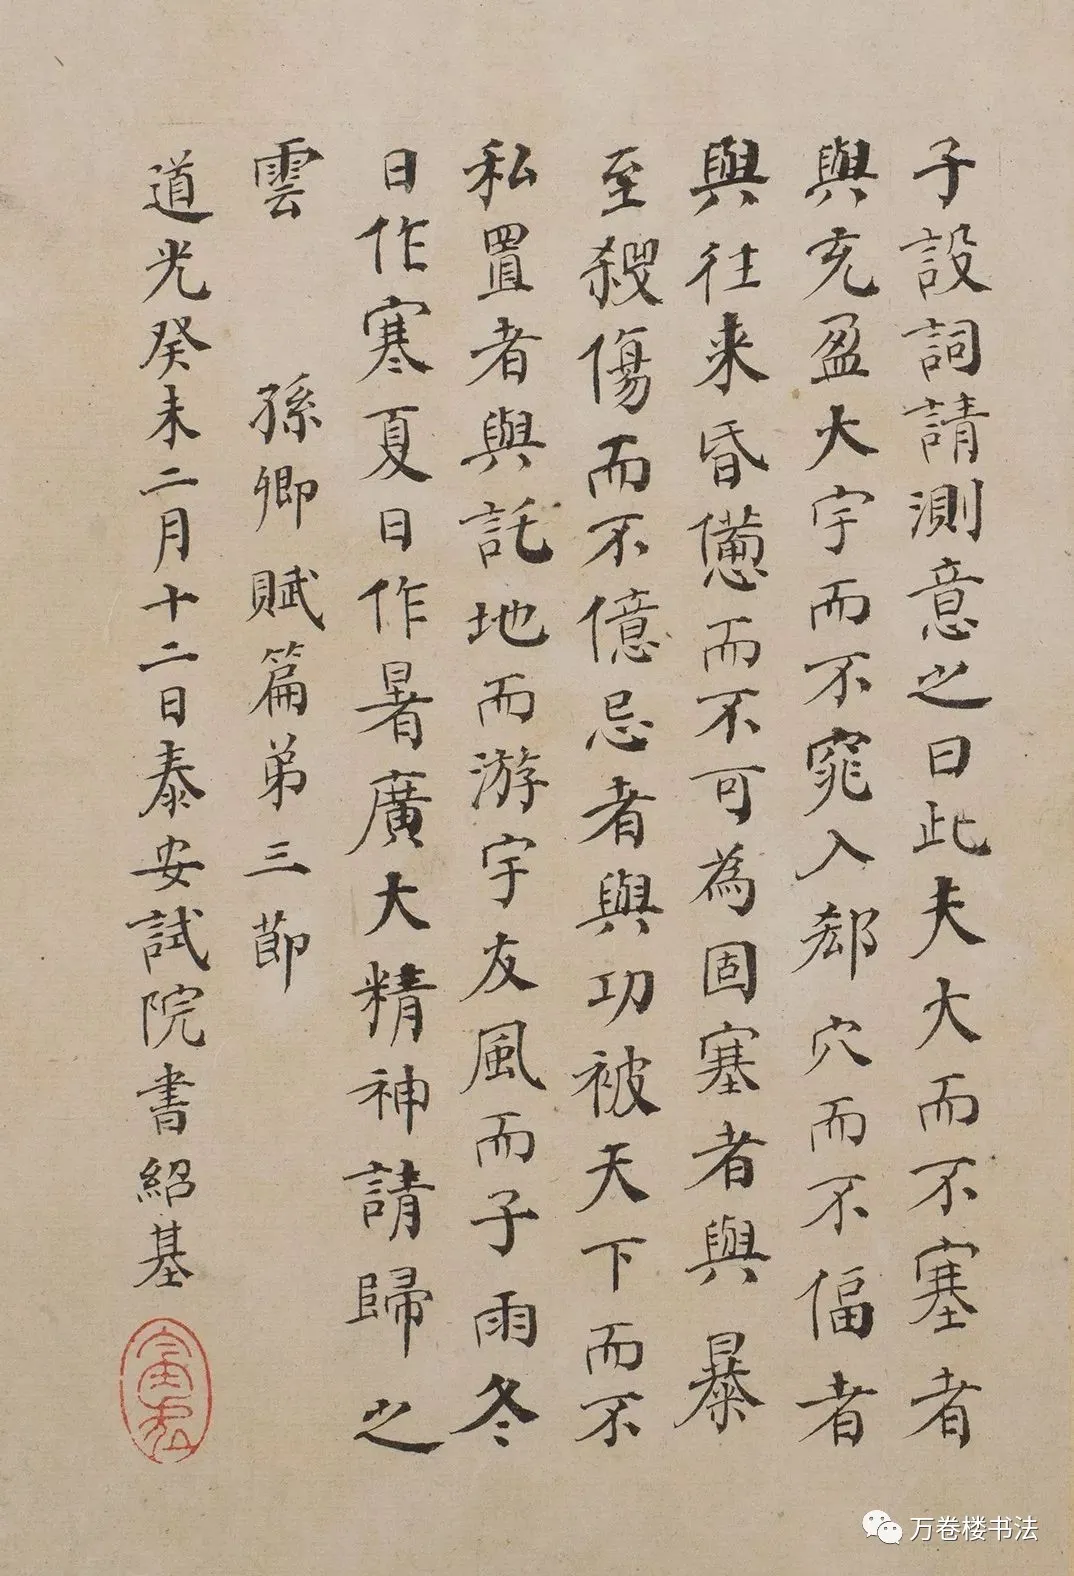 子設詞請測意之曰此夫大而不塞者
與充盈大宇而不窕入郄穴而不偪者
與往来昏憊而不可為固塞者與暴
至殺傷而不億忌者與功被天下而不
私置者與託地而游宇友風而子雨冬
日作寒夏日作暑廣大精神請歸之
雲 孫卿賦篇弟三節
道光癸未二月十二日泰安試院書紹基
万卷楼书法